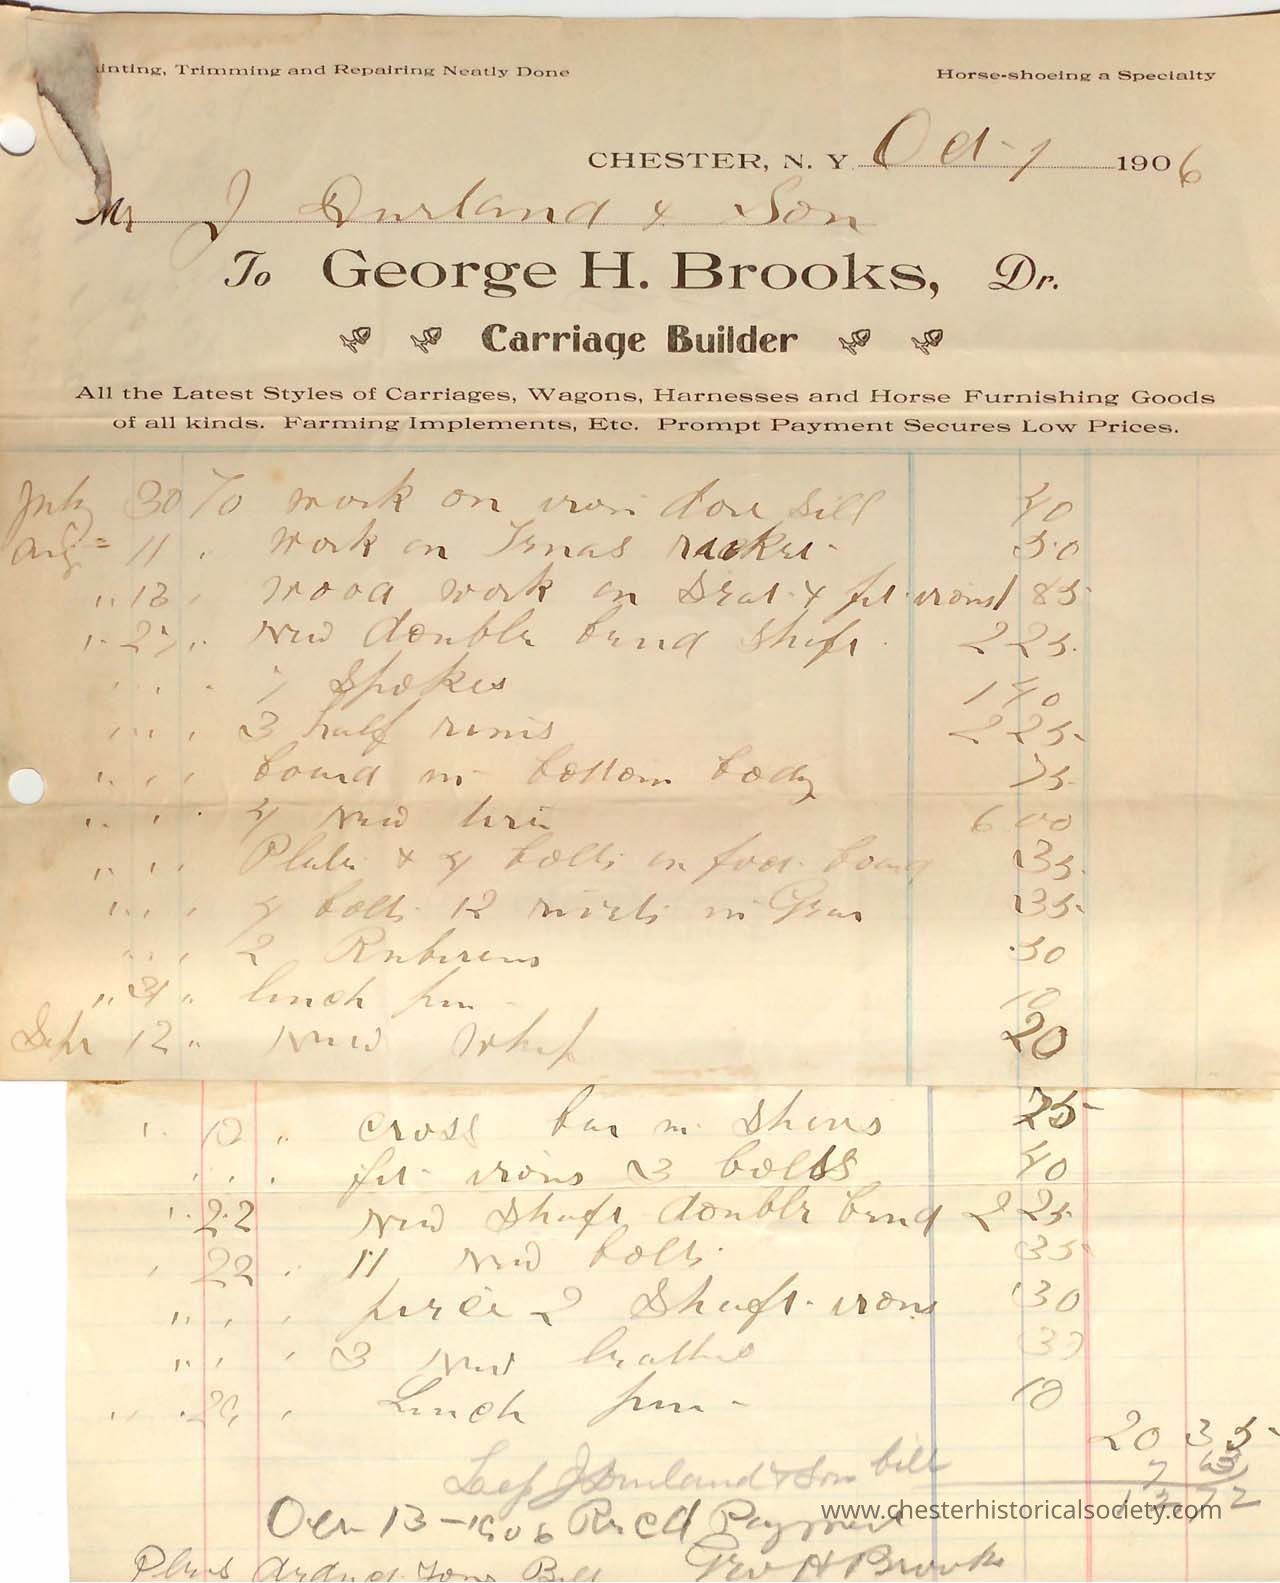 inting, Trimming and Repairing Neatly Done
Horse-shoeing a Specialty
CHESTER, N. Y. Oct 1 1906
Mr J Durland & Son
To George H. Brooks, Dr.
Carriage Builder
All the Latest Styles of Carriages, Wagons, Harnesses and Horse Furnishing Goods
of all kinds. Farming Implements, Etc. Prompt Payment Secures Low Prices.
July 30 To work on iron dore sill 40
Aug 11 " work on Racket 50
" 13 " wood work on Seat & fit irons 85
" 27 " New double bend Shaft 2 25
" " " 7 Spokes 1 40
" " " 3 half rims 2 25
" " " board in bottom body 75
" " " 4 New 6 00
" " " Plate & 4 bolts on foot board 35
" " " 4 bolts 12 rivets in Gear 35
" " " 2 50
" 31 " linch pin 10
Sept 12 " New Whif 20
" " cross bar in Shavs 75
" " " fit irons 3 bolts 40
" 22 New Shaft double bend 2 25
" 22 " 11 New bolts 35
" " " 2 Shaft irons 30
" " " 3 New 30
" " Linch pin 10
20 35
Less J Durland & Son bill 7 63
12 72
www.chesterhistoricalsociety.com
Oct 13 - 1906 Recd Payment
Geo H Brooks
Bill